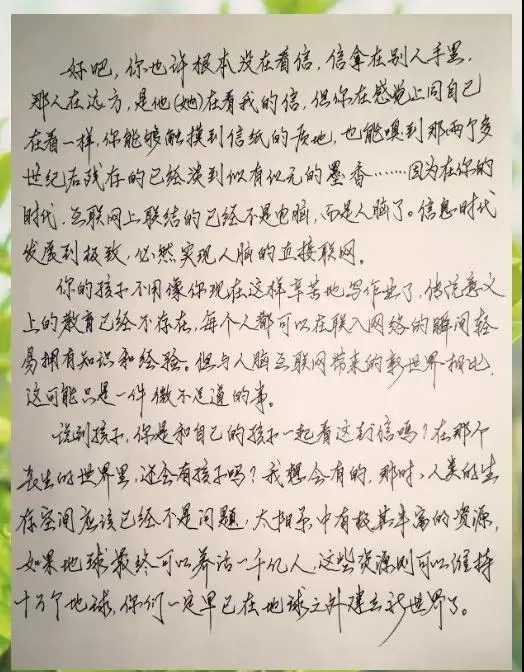 好吧，你也许根本没在看信，信拿在别人手里，
那人在远方，是他(她)在看我的信，但你在感觉上同自己
在看一样，你能够触摸到信纸的质地，也能嗅到那两个多
世纪后残存的已经淡到似有似无的墨香………因为在你的
时代，互联网上联结的已经不是电脑，而是人脑了。信息时代
发展到极致，必然实现人脑的直接联网。
你的孩子不用像你现在这样辛苦地写作业了，传统意义
上的教育已经不存在，每个人都可以在联入网络的瞬间轻
易拥有知识和经验。但与人脑互联网带来的新世界相比，
这可能只是一件微不足道的事。
说到孩子，你是和自己的孩子一起看这封信吗？在那个
长生的世界里，还会有孩子吗？我想会有的，那时，人类的生
存空间应该已经不是问题，太阳系中有极其丰富的资源，
如果地球最终可以养活一千亿人，这些资源则可以维持
十万个地球，你们一定早已在地球之外建立新世界了。